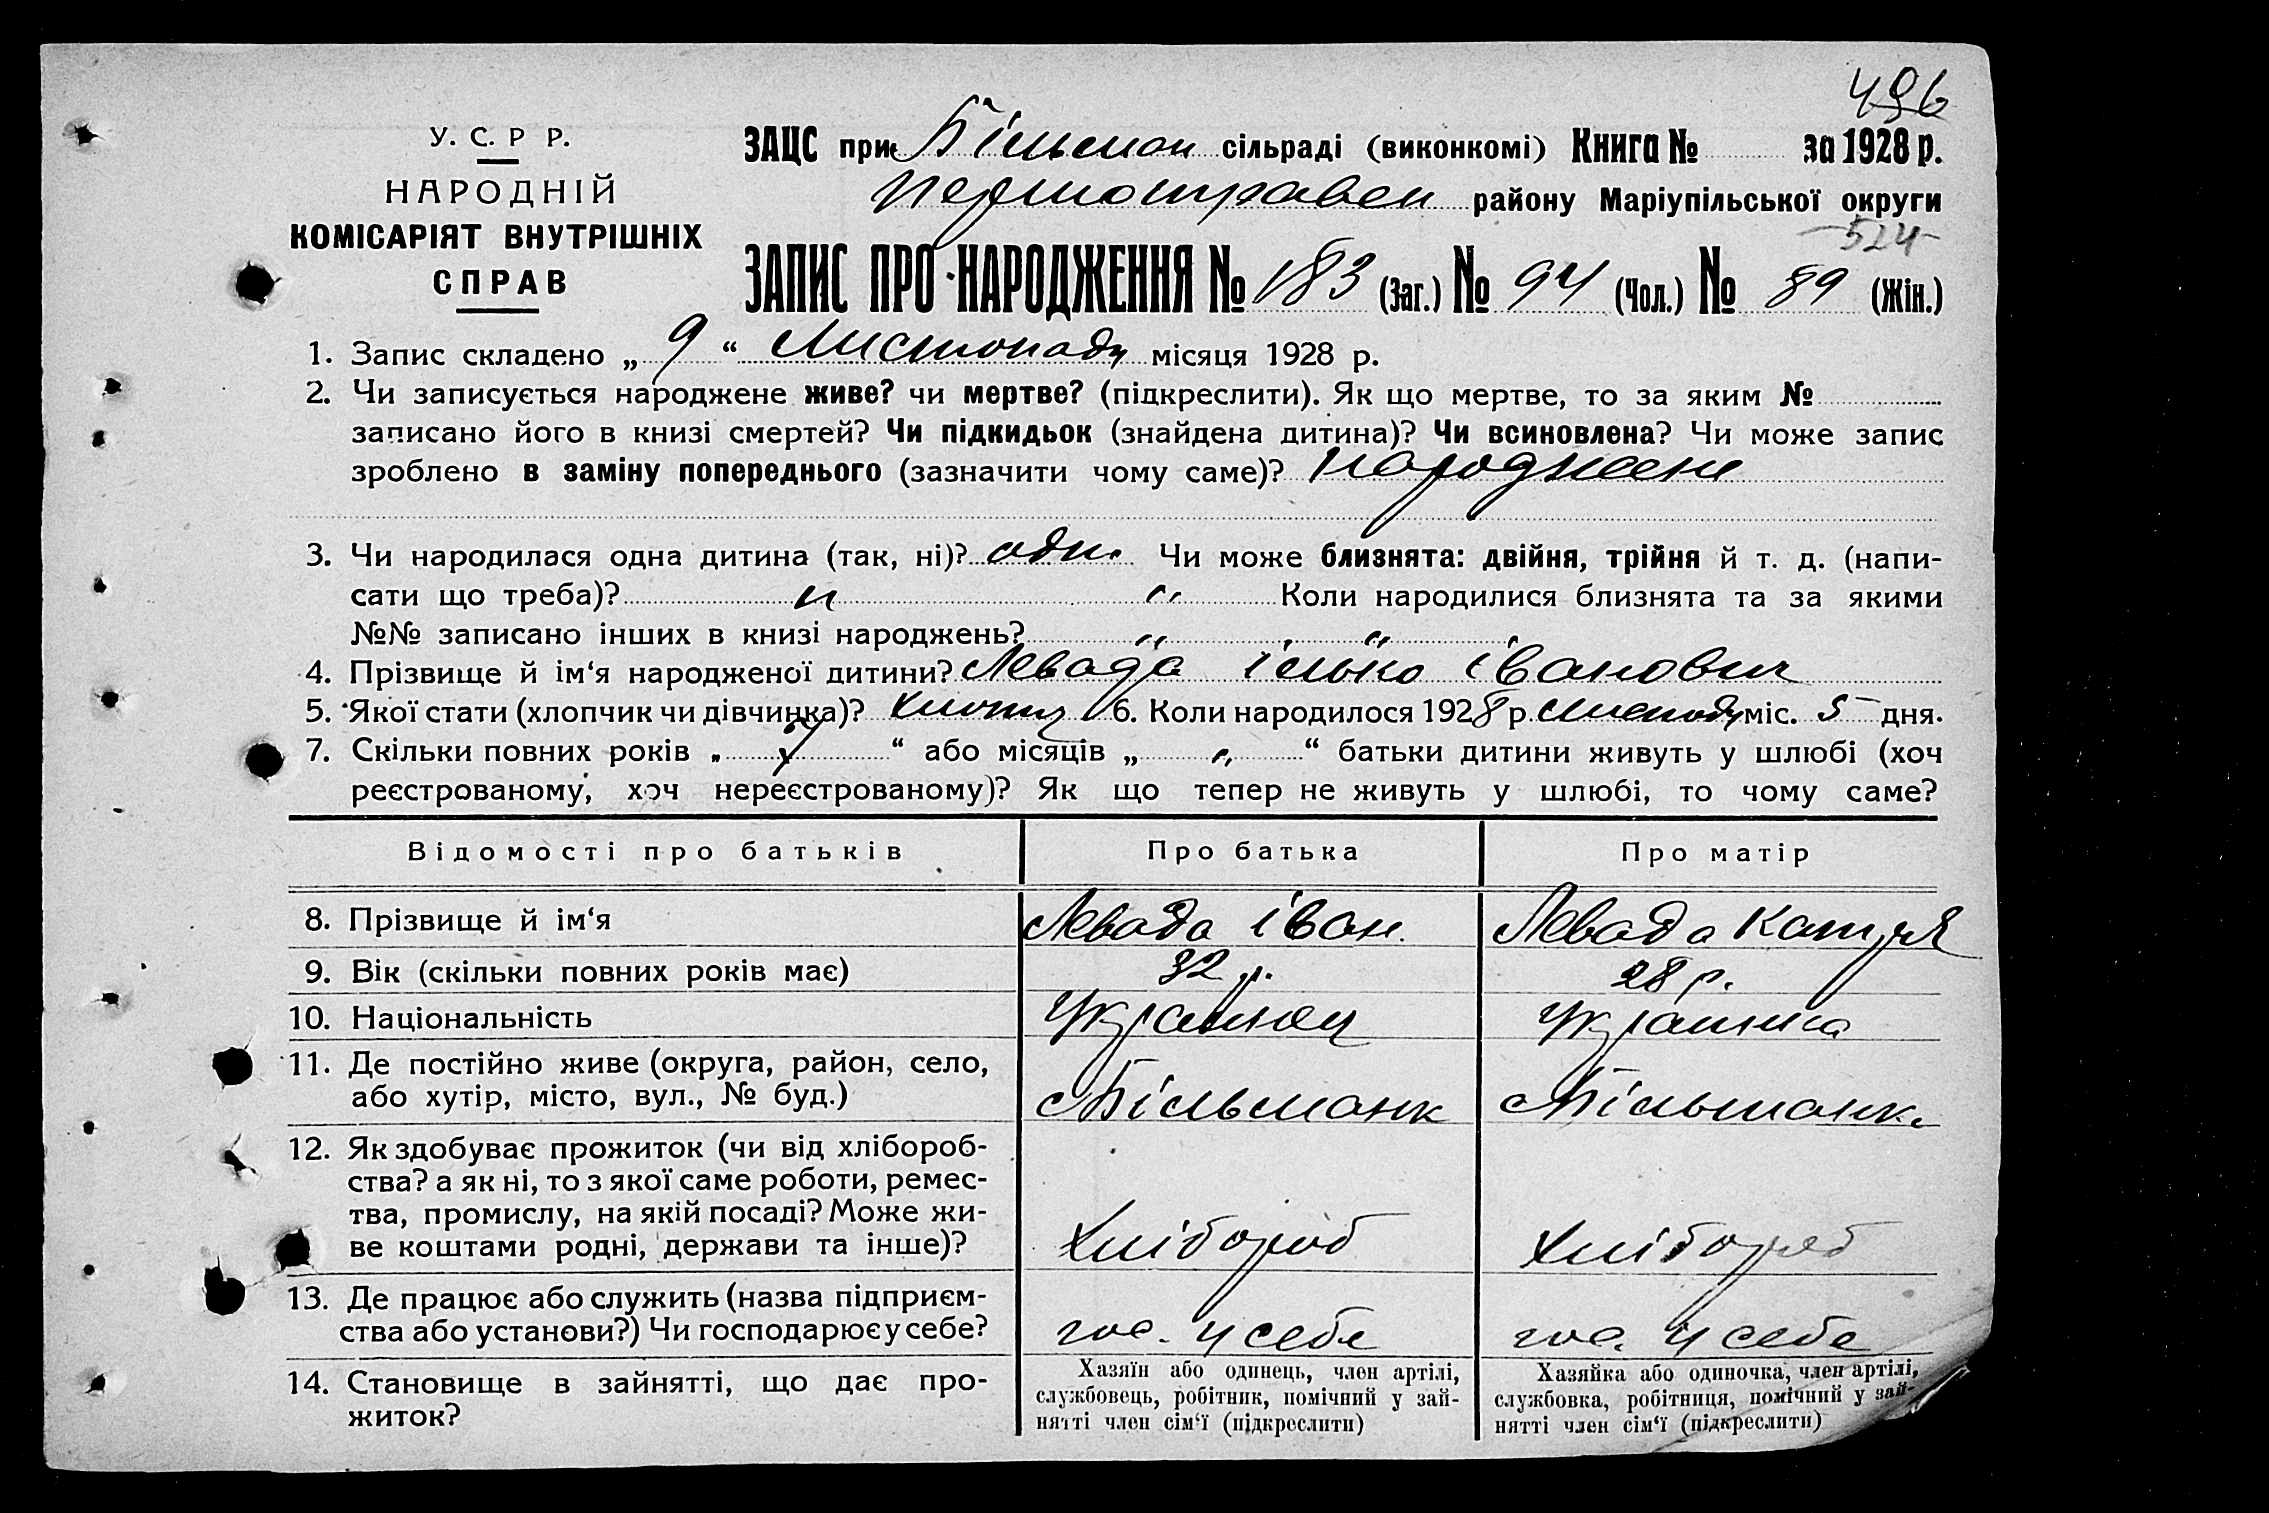 496
У. С. Р Р.
НАРОДНІЙ
КОМІСАРІЯТ ВНУТРІШНІХ
СПРАВ
ЗАЦС при Більман сільраді (виконкомі) Книга № за 1928 р.
Першотравен району Маріупільської округи
-524-
ЗАПИС ПРО НАРОДЖЕННЯ № 183 (Заг.) № 94 (Чол.) № 89 (Жін.)
1. Запис складено „ 9 “ Листопаду місяця 1928 р.
2. Чи записується народжене живе? чи мертве? (підкреслити). Як що мертве, то за яким №
записано його в книзі смертей? Чи підкидьок (знайдена дитина)? Чи всиновлена? Чи може запис
зроблено в заміну попереднього (зазначити чому саме)? народжене
3. Чи народилася одна дитина (так, ні)? одна Чи може близнята: двійня, трійня й т. д. (напи-
сати що треба)? „ „ Коли народилися близнята та за якими
№№ записано інших в книзі народжень? „ „ „
4. Прізвище й ім‘я народженої дитини? Левада Ілько Іванович
5. Якої стати (хлопчик чи дівчинка)? Хлопчик 6. Коли народилося 1928 р. Листопаду міс. 5 дня.
7. Скільки повних років „ 7 “ або місяців „ „ “ батьки дитини живуть у шлюбі (хоч
реєстрованому, хоч нереєстрованому)? Як що тепер не живуть у шлюбі, то чому саме?
Відомості про батьків Про батька Про матір
8. Прізвище й ім‘я Левада Іван Левада Катря
9. Вік (скільки повних років має) 32 р. 28 р.
10. Національність Українец Українка
11. Де постійно живе (округа, район, село,
або хутір, місто, вул., № буд.) с Більманк с Більманк
12. Як здобуває прожиток (чи від хлібороб-
ства? а як ні, то з якої саме роботи, ремес-
тва, промислу, на якій посаді? Може жи-
ве коштами родні, держави та інше)? Хлібороб Хлібороб
13. Де працює або служить (назва підприєм-
ства або установи?) Чи господарює у себе? гос. у себе гос. у себе
14. Становище в зайнятті, що дає про-
житок?
Хазяїн або одинець, член артілі,
службовець, робітник, помічний у зай-
нятті член сім‘ї (підкреслити)
Хазяйка або одиночка, член артілі,
службовка, робітниця, помічний у зай-
нятті член сім‘ї (підкреслити)